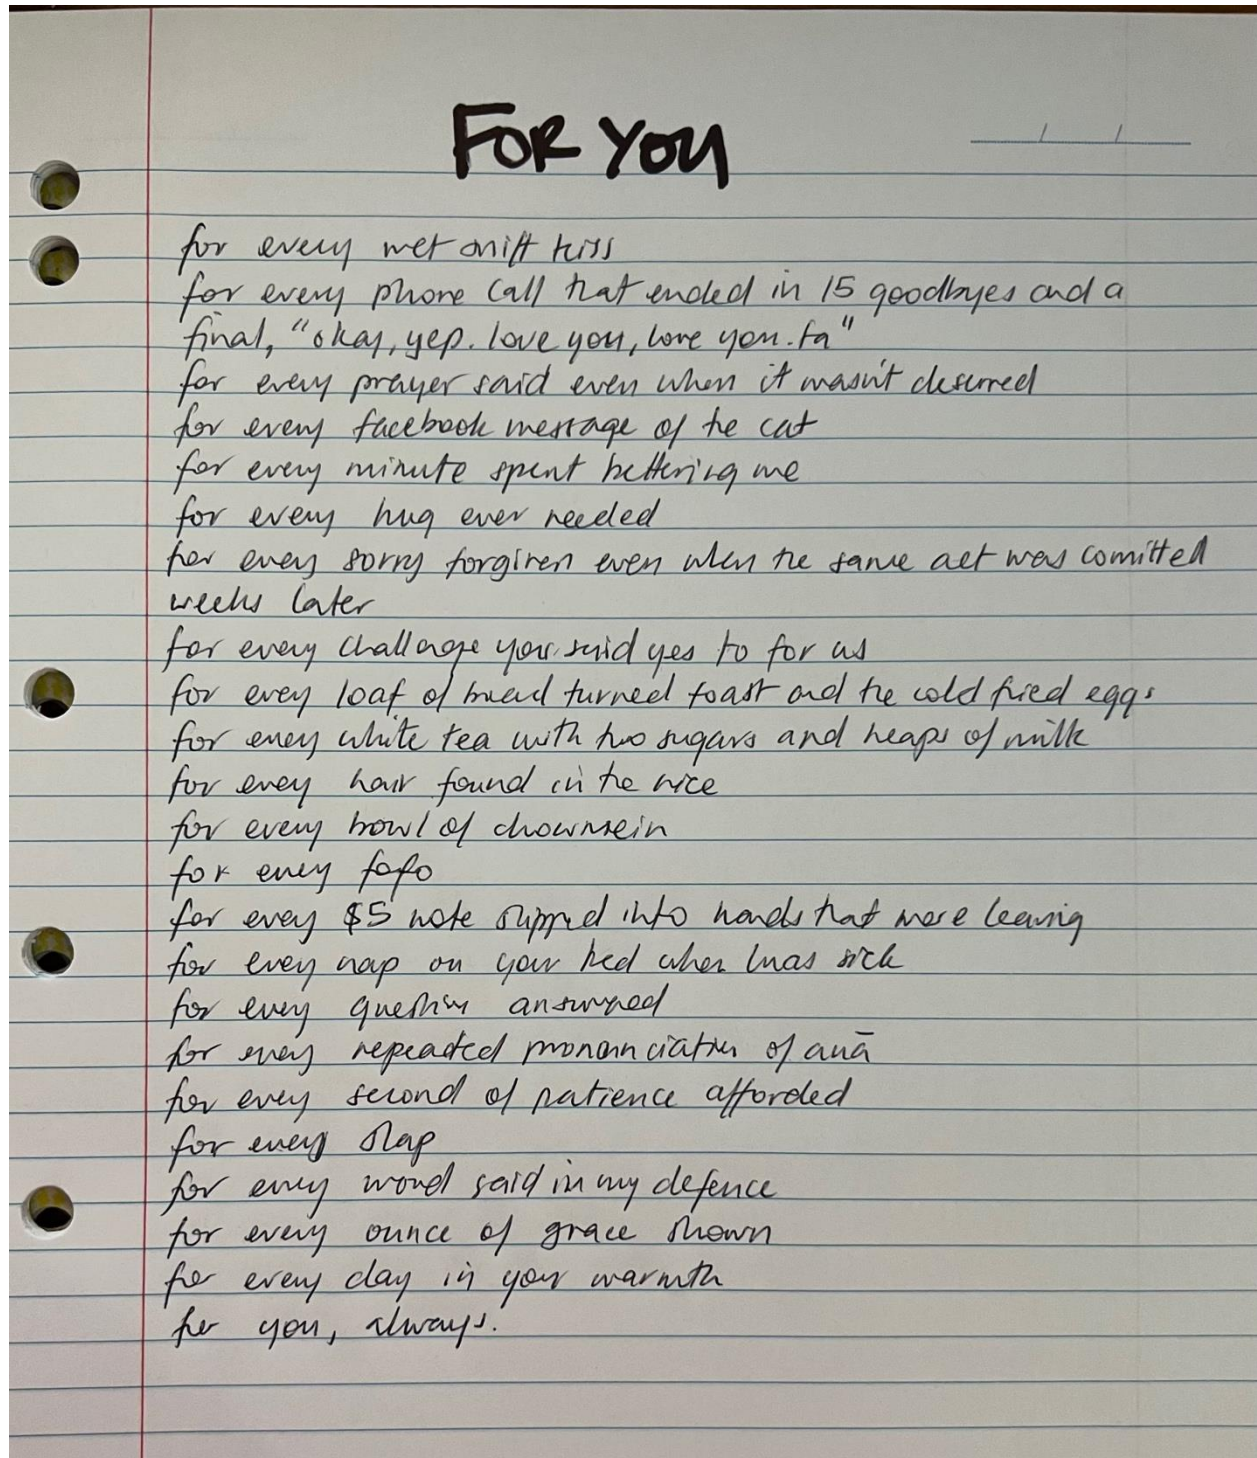 FOR YOU
for every wet sniff kiss
for every phone call that ended in 15 goodbyes and a
final, "okay, yep. love you, love you. fa"
for every prayer said even when it wasn't deserved
for every facebook message of the cat
for every minute spent bettering me
for every hug ever needed
for every sorry forgiven even when the same act was comitted
weeks later
for every challenge you said yes to for us
for every loaf of bread turned toast and the cold fried eggs
for every white tea with two sugars and heaps of milk
for every hair found in the rice
for every bowl of chowmein
for every fofo
for every $5 note slipped into hands that were leaving
for every nap on your bed when I was sick
for every question answered
for every repeated pronounciation of auā
for every second of patience afforded
for every slap
for every word said in my defence
for every ounce of grace shown
for every day in your warmth
for you, always.